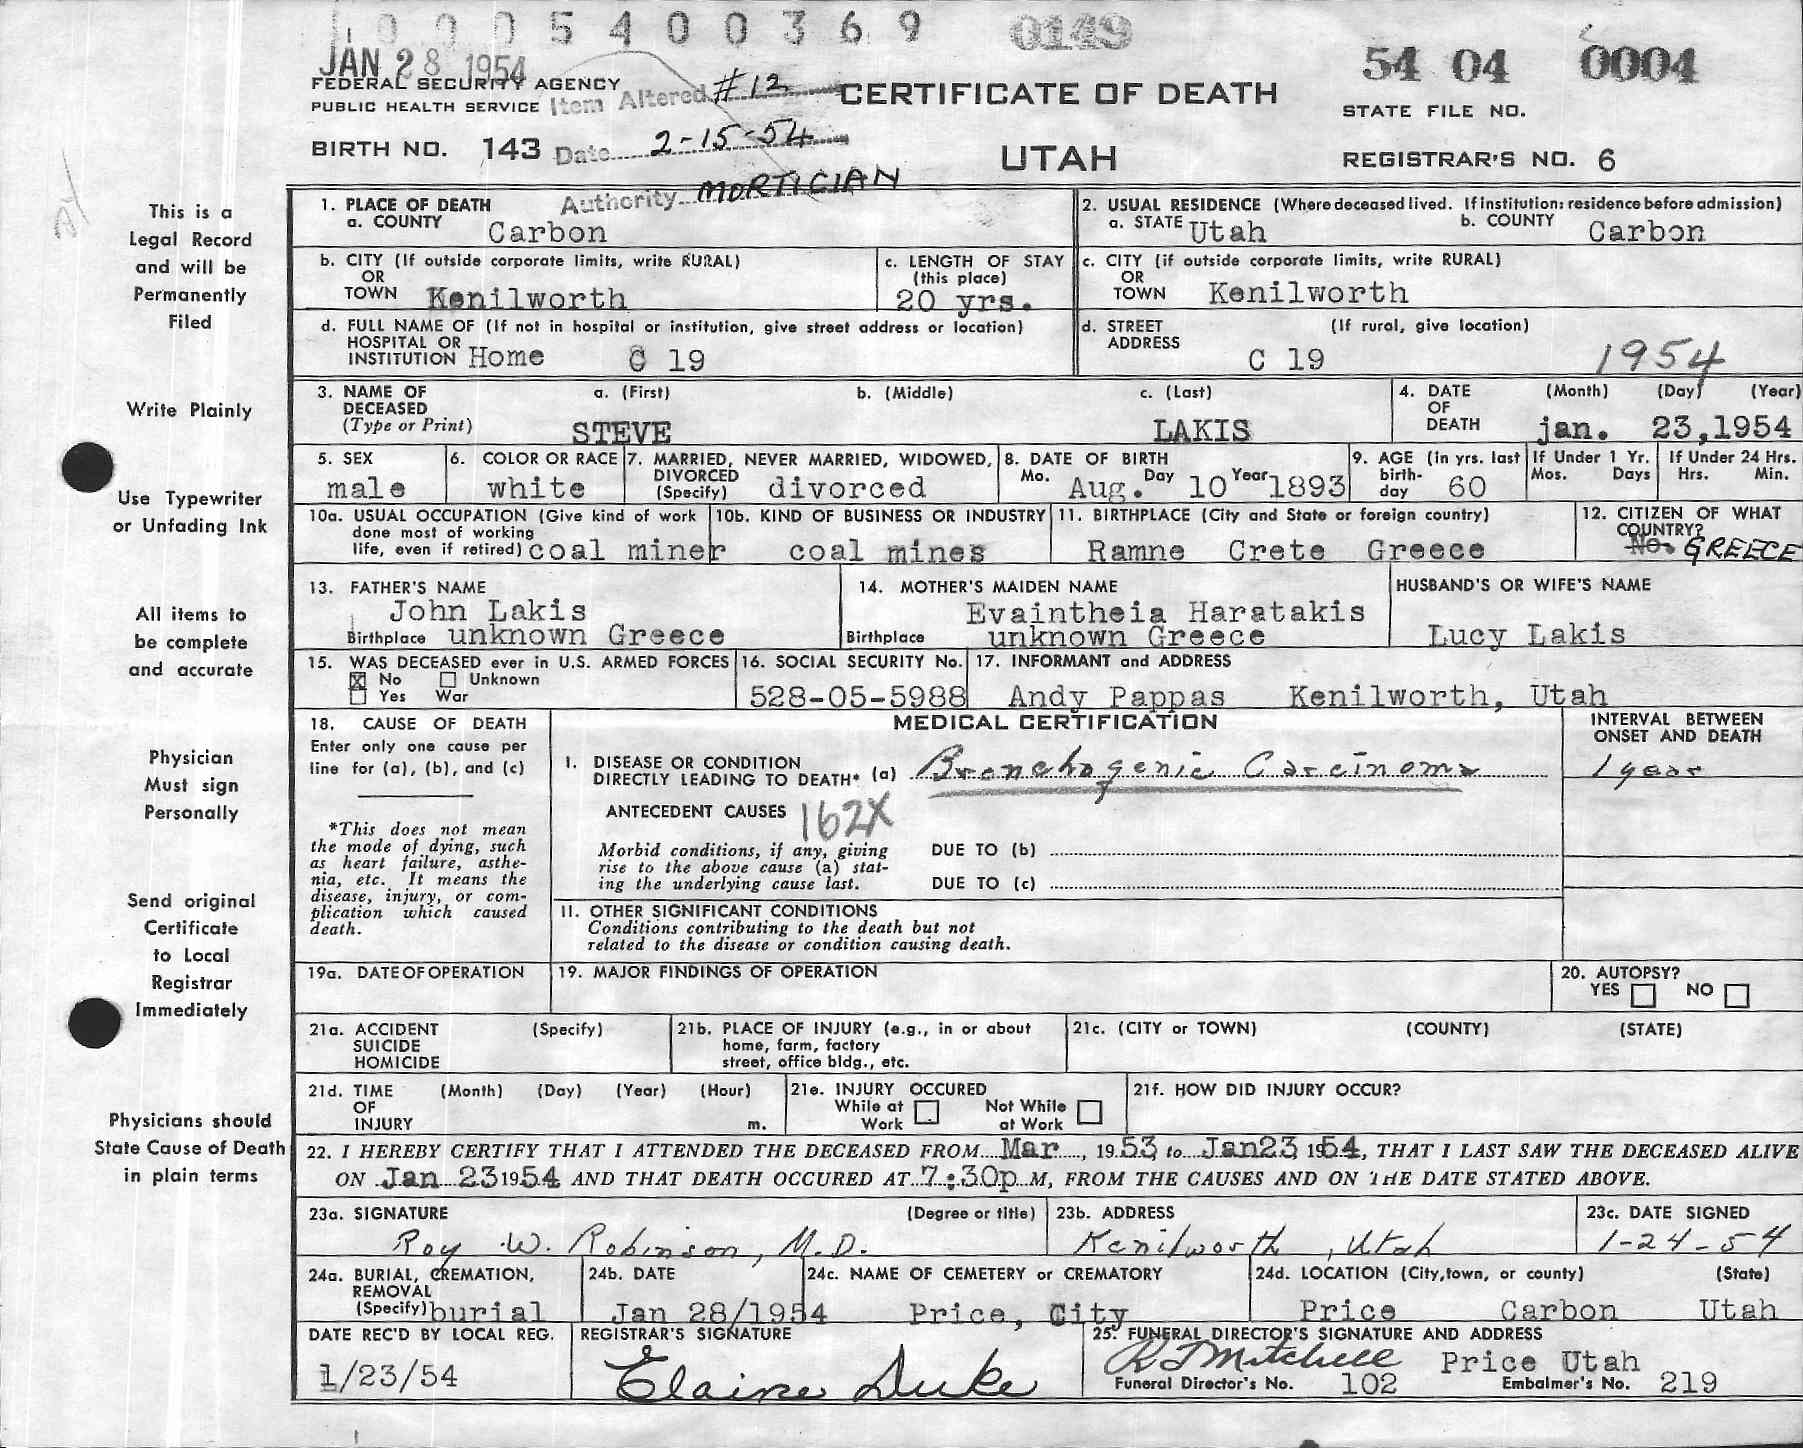 0005400369 0149
JAN 28 1954
54 04 0004
FEDERAL SECURITY AGENCY
PUBLIC HEALTH SERVICE
Item Altered #12
CERTIFICATE OF DEATH
STATE FILE NO.
BIRTH NO. 143
Date 2-15-54
UTAH
REGISTRAR'S NO. 6
Authority MORTICIAN
This is a
Legal Record
and will be
Permanently
Filed
Write Plainly
Use Typewriter
or Unfading Ink
All items to
be complete
and accurate
Physician
Must sign
Personally
Send original
Certificate
to Local
Registrar
Immediately
Physicians should
State Cause of Death
in plain terms
1. PLACE OF DEATH
a. COUNTY Carbon
2. USUAL RESIDENCE (Where deceased lived. If institution: residence before admission)
a. STATE Utah b. COUNTY Carbon
b. CITY (If outside corporate limits, write RURAL)
OR
TOWN Kenilworth
c. LENGTH OF STAY
(this place)
20 yrs.
c. CITY (if outside corporate limits, write RURAL)
OR
TOWN Kenilworth
d. FULL NAME OF (If not in hospital or institution, give street address or location)
HOSPITAL OR
INSTITUTION Home C 19
d. STREET (If rural, give location)
ADDRESS
C 19 1954
3. NAME OF a. (First) b. (Middle) c. (Last)
DECEASED
(Type or Print) STEVE LAKIS
4. DATE (Month) (Day) (Year)
OF
DEATH jan. 23,1954
5. SEX
male
6. COLOR OR RACE
white
7. MARRIED, NEVER MARRIED, WIDOWED,
DIVORCED
(Specify) divorced
8. DATE OF BIRTH
Mo. Aug. Day 10 Year 1893
9. AGE (in yrs. last
birth-
day 60
If Under 1 Yr.
Mos. Days
If Under 24 Hrs.
Hrs. Min.
10a. USUAL OCCUPATION (Give kind of work
done most of working
life, even if retired) coal miner
10b. KIND OF BUSINESS OR INDUSTRY
coal mines
11. BIRTHPLACE (City and State or foreign country)
Ramne Crete Greece
12. CITIZEN OF WHAT
COUNTRY?
No. GREECE
13. FATHER'S NAME
John Lakis
Birthplace unknown Greece
14. MOTHER'S MAIDEN NAME
Evaintheia Haratakis
Birthplace unknown Greece
HUSBAND'S OR WIFE'S NAME
Lucy Lakis
15. WAS DECEASED ever in U.S. ARMED FORCES
☒ No ☐ Unknown
☐ Yes War
16. SOCIAL SECURITY No.
528-05-5988
17. INFORMANT and ADDRESS
Andy Pappas Kenilworth, Utah
18. CAUSE OF DEATH
Enter only one cause per
line for (a), (b), and (c)
*This does not mean
the mode of dying, such
as heart failure, asthe-
nia, etc. It means the
disease, injury, or com-
plication which caused
death.
MEDICAL CERTIFICATION
INTERVAL BETWEEN
ONSET AND DEATH
I. DISEASE OR CONDITION
DIRECTLY LEADING TO DEATH* (a) Bronchogenic Carcinoma 1 year
ANTECEDENT CAUSES 162X
Morbid conditions, if any, giving
rise to the above cause (a) stat-
ing the underlying cause last.
DUE TO (b)
DUE TO (c)
II. OTHER SIGNIFICANT CONDITIONS
Conditions contributing to the death but not
related to the disease or condition causing death.
19a. DATE OF OPERATION
19. MAJOR FINDINGS OF OPERATION
20. AUTOPSY?
YES ☐ NO ☐
21a. ACCIDENT (Specify)
SUICIDE
HOMICIDE
21b. PLACE OF INJURY (e.g., in or about
home, farm, factory
street, office bldg., etc.
21c. (CITY or TOWN) (COUNTY) (STATE)
21d. TIME (Month) (Day) (Year) (Hour)
OF
INJURY m.
21e. INJURY OCCURED
While at Work ☐ Not While at Work ☐
21f. HOW DID INJURY OCCUR?
22. I HEREBY CERTIFY THAT I ATTENDED THE DECEASED FROM Mar, 1953 to Jan23 1954, THAT I LAST SAW THE DECEASED ALIVE
ON Jan 23 1954 AND THAT DEATH OCCURED AT 7:30p M, FROM THE CAUSES AND ON THE DATE STATED ABOVE.
23a. SIGNATURE (Degree or title)
Roy W. Robinson, M.D.
23b. ADDRESS
Kenilworth, Utah
23c. DATE SIGNED
1-24-54
24a. BURIAL, CREMATION,
REMOVAL
(Specify) burial
24b. DATE
Jan 28/1954
24c. NAME OF CEMETERY or CREMATORY
Price, City
24d. LOCATION (City, town, or county) (State)
Price Carbon Utah
DATE REC'D BY LOCAL REG.
1/23/54
REGISTRAR'S SIGNATURE
Elaine Duke
25. FUNERAL DIRECTOR'S SIGNATURE AND ADDRESS
R J Mitchell Price Utah
Funeral Director's No. 102 Embalmer's No. 219